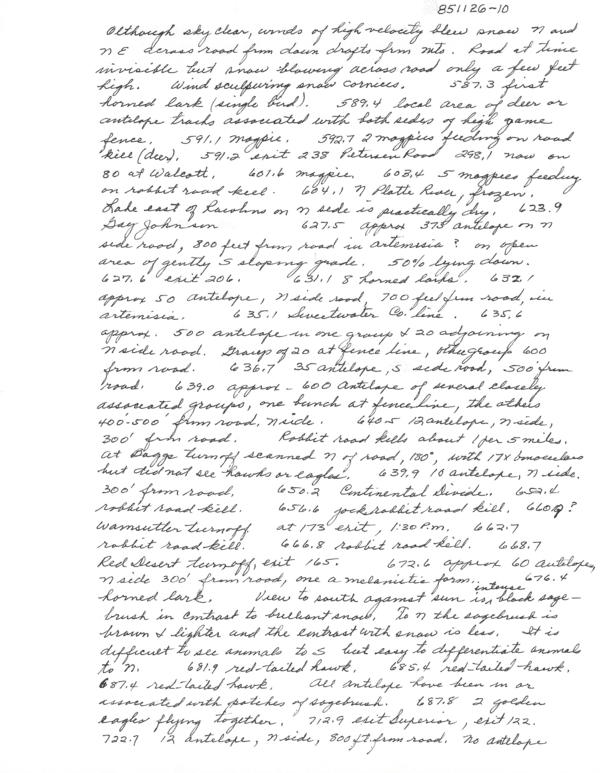 851126-10
Although sky clear, winds of high velocity blew snow N and
NE across road from down drafts from mts. Road at time
invisible but snow blowing across road only a few feet
high. Wind sculpturing snow cornices. 587.3 first
horned lark (single bird). 589.4 local area of deer or
antelope tracks associated with both sides of high game
fence. 591.1 magpie. 592.7 2 magpies feeding on road
kill (deer). 591.2 exit 238 Peterson Road 298.1 now on
80 at Walcott. 601.6 magpie. 603.4 5 magpies feeding
on rabbit road kill. 604.1 N Platte River, frozen.
Lake east of Rawlins on N side is practically dry. 623.9
Gay Johnson 627.5 approx 375 antelope on N
side road, 800 feet from road in artemisia? on open
area of gently S sloping grade. 50% lying down.
627.6 exit 206. 631.1 8 horned larks. 632.1
approx 50 antelope, N side road, 700 feet from road, in
artemisia. 635.1 Sweetwater Co. line. 635.6
approx. 500 antelope in one group & 20 adjoining on
N side road. Group of 20 at fence line, other group 600
from road. 636.7 35 antelope, S side road, 500' from
road. 639.0 approx - 600 antelope of several closely
associated groups, one bunch at fence line, the others
400-500' from road, N side. 640.5 12 antelope, N side,
300' from road. Rabbit road kills about 1 per 5 miles.
At Baggs turnoff scanned N of road, 180°, with 17x binoculars
but did not see hawks or eagles. 639.9 10 antelope, N side.
300' from road. 650.2 Continental Divide. 652.4
rabbit road kill. 656.6 jack rabbit road kill. 660.9?
Wamsutter turnoff at 173 exit, 1:30 P.m. 662.7
rabbit road kill. 666.8 rabbit road kill. 668.7
Red Desert turnoff, exit 165. 672.6 approx 60 antelope,
N side 300' from road, one a melanistic form. 676.4
horned lark. View to south against sun is intense black sage-
brush in contrast to brilliant snow. To N the sagebrush is
brown & lighter and the contrast with snow is less. It is
difficult to see animals to S but easy to differentiate animals
to N. 681.9 red-tailed hawk. 685.4 red-tailed-hawk.
687.4 red-tailed hawk. All antelope have been in or
associated with patches of sagebrush. 687.8 2 golden
eagles flying together. 712.9 exit Superior, exit 122.
722.7 12 antelope, N side, 800 ft. from road. No antelope